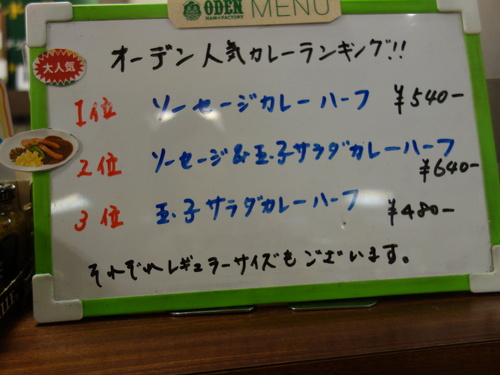 ODEN
HAM★FACTORY
MENU
オーデン人気カレーランキング!!
大人気
1位 ソーセージカレーハーフ ¥540-
2位 ソーセージ&玉子サラダカレーハーフ
¥640-
3位 玉子サラダカレーハーフ ¥480-
それぞれレギュラーサイズもございます。